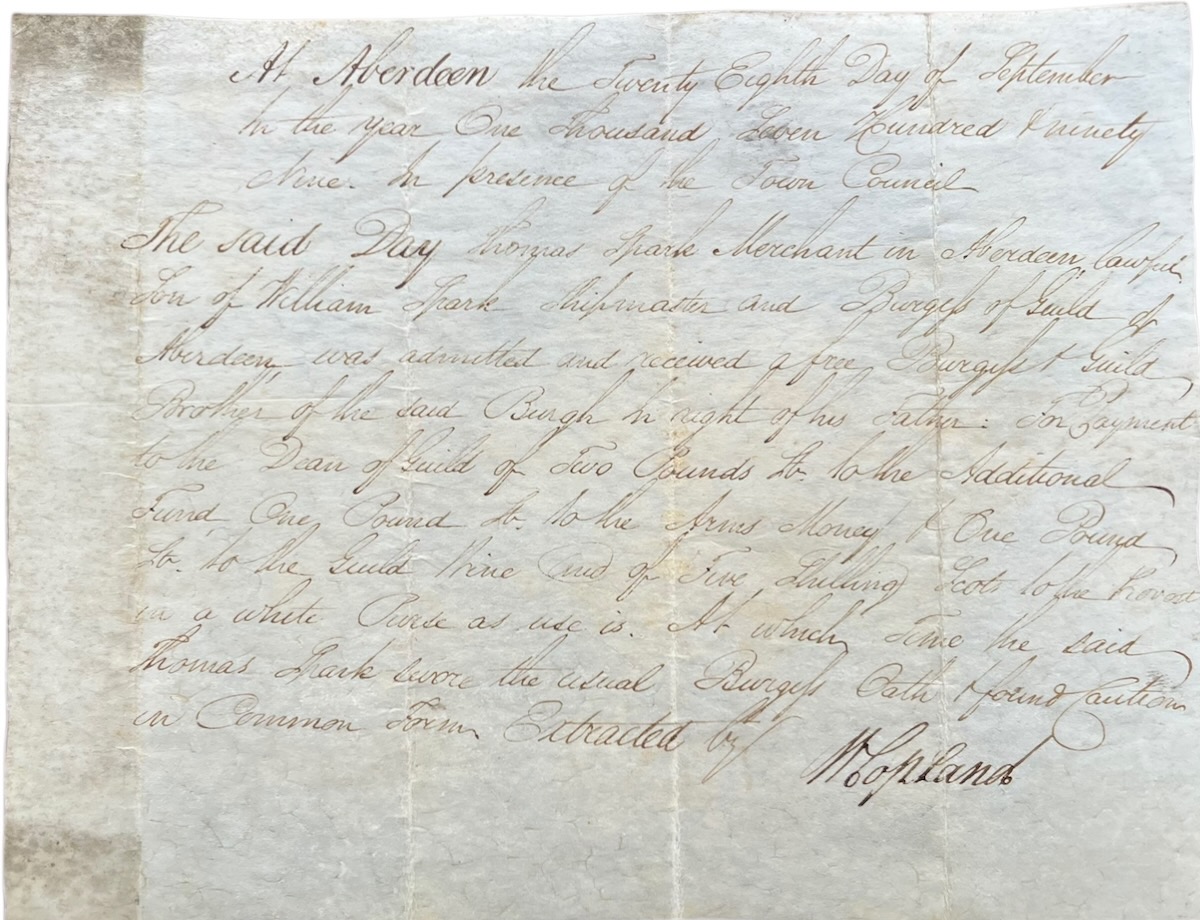 At Aberdeen the Twenty Eighth Day of September
In the year One Thousand Seven Hundred & ninety
Nine. In presence of the Town Council
The said Day Thomas Spark Merchant in Aberdeen lawful
Son of William Spark Shipmaster and Burgess of Guild of
Aberdeen, was admitted and received a free Burgess & Guild
Brother of the said Burgh In right of his Father: For Payment
to the Dean of Guild of Two Pounds St. to the Additional
Fund, One Pound St. to the Arms Money & One Pound
St. to the Guild Wine And of Five Shilling Scots to the Provost
in a white Purse as use is. At which Time the said
Thomas Spark swore the usual Burgess Oath & found Caution
in Common Form Extracted by
W Copland